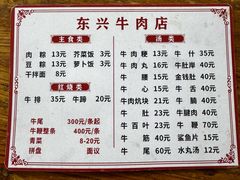 东兴牛肉店
主食类
肉粽 13元 芥菜饭 3元
豆粽 13元 萝卜饭 3元
牛拌面 8元
红烧类
牛排 35元 牛蹄 20元
牛尾 300元/条起
牛鞭整条 400元/条
青菜 8-20元
拼盘 面议
汤类
牛肉粳 15元 牛什 35元
牛肉丸 16元 牛肚岸 40元
牛腰 15元 金钱肚 40元
牛心 15元 牛舌 40元
牛肉炕块 15元 牛脑 40元
牛肚 15元 牛腱肉 40元
牛百叶 23元 牛鞭 70元
牛筋 40元 鲨鱼片 15元
牛尾 60元 水丸汤 12元